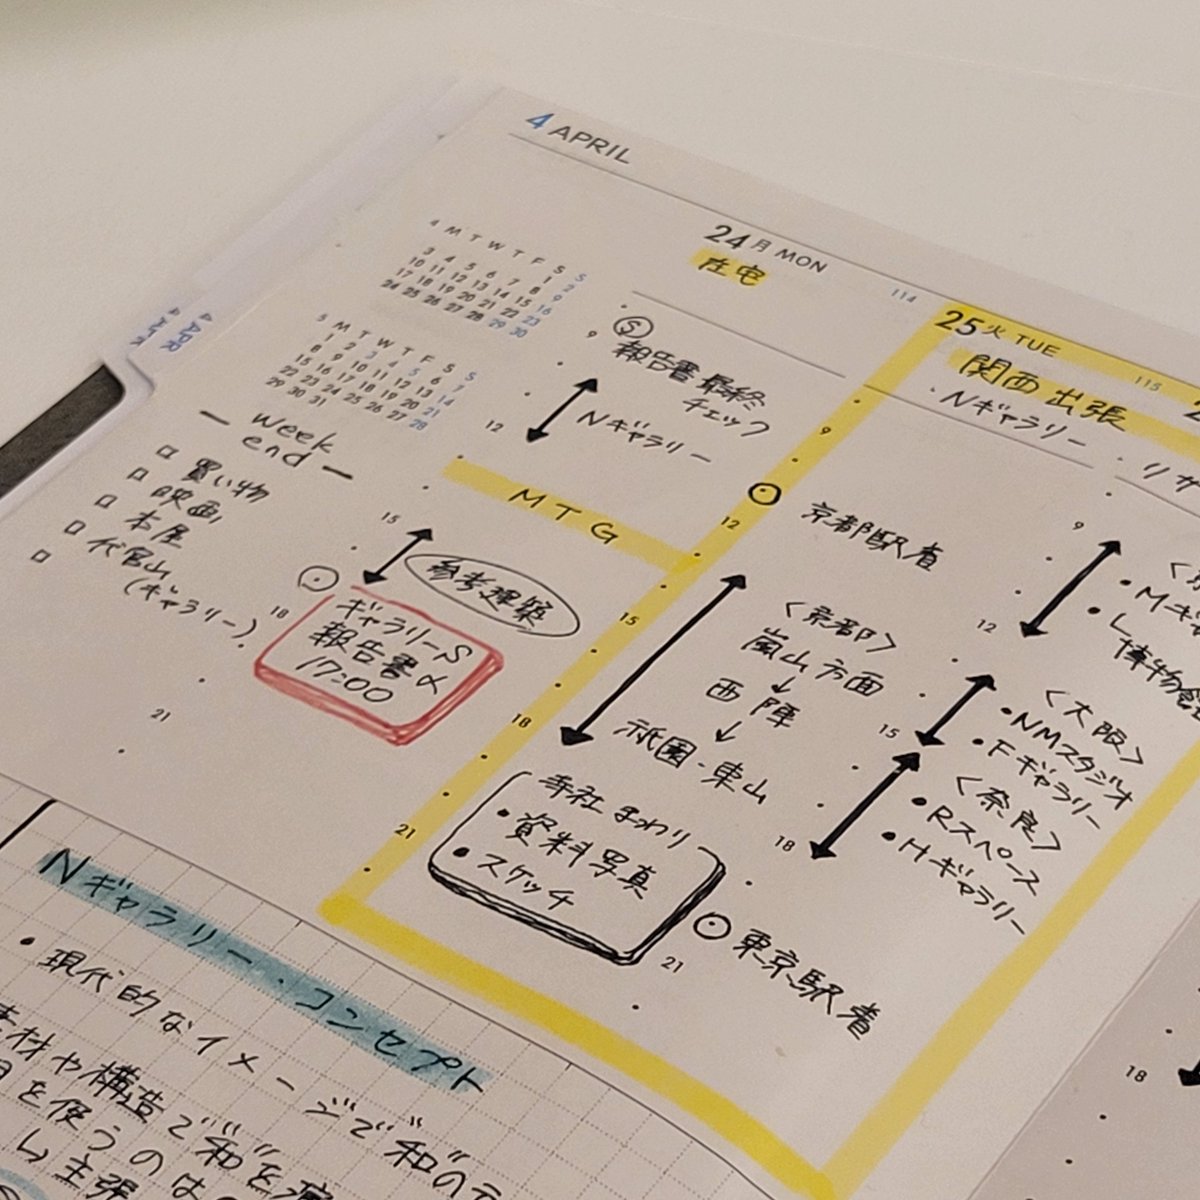 4 APRIL
4 M T W T F S S
1 2
3 4 5 6 7 8 9
10 11 12 13 14 15 16
17 18 19 20 21 22 23
24 25 26 27 28 29 30
5 M T W T F S S
1 2 3 4 5 6 7
8 9 10 11 12 13 14
15 16 17 18 19 20 21
22 23 24 25 26 27 28
29 30 31
4 APR
week
end
買い物
映画
本屋
代官山
(ギャラリー)
24 月 MON
114
在宅
9
Ⓢ
報告書 最終
チェック
12
Nギャラリー
MTG
15
参考建築
18
ギャラリーS
報告書〆
17:00
21
25 火 TUE
115
関西出張
・Nギャラリー
9
12
京都駅着
15
〈京都〉
嵐山方面
↓
西陣
↓
祇園・東山
18
寺社まわり
・資料写真
・スケッチ
21
・リサ
9
・Mギャ
・L
博物館
12
〈大阪〉
・NMスタジオ
・Fギャラリー
15
〈奈良〉
・Rスペース
・Hギャラリー
18
21
東京駅着
18
Nギャラリー・コンセプト
・現代的なイメージで"和"の
素材や構造で"和"を
を使うのは
主張